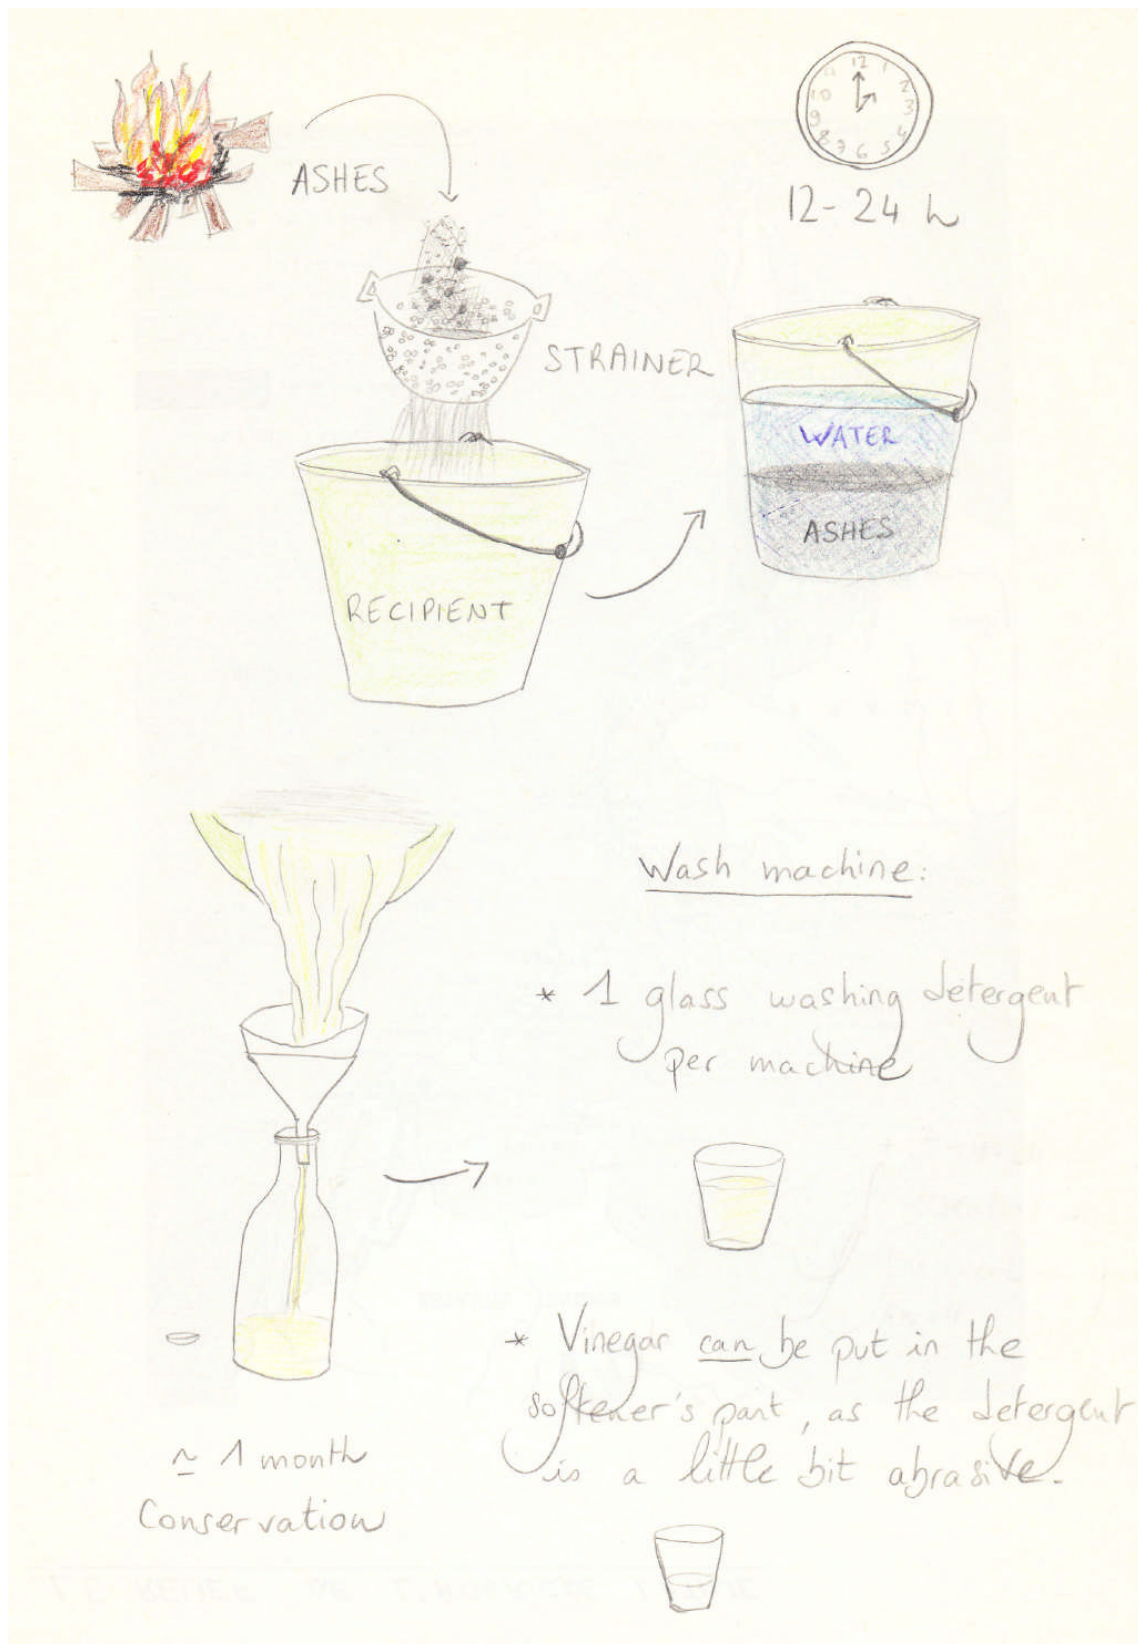 ASHES
12 1 2 3 4 5 6 7 8 9 10 11
12-24 h
STRAINER
WATER
ASHES
RECIPIENT
Wash machine:
* 1 glass washing detergent
per machine
* Vinegar can be put in the
softener's part, as the detergent
is a little bit abrasive.
~ 1 month
Conservation